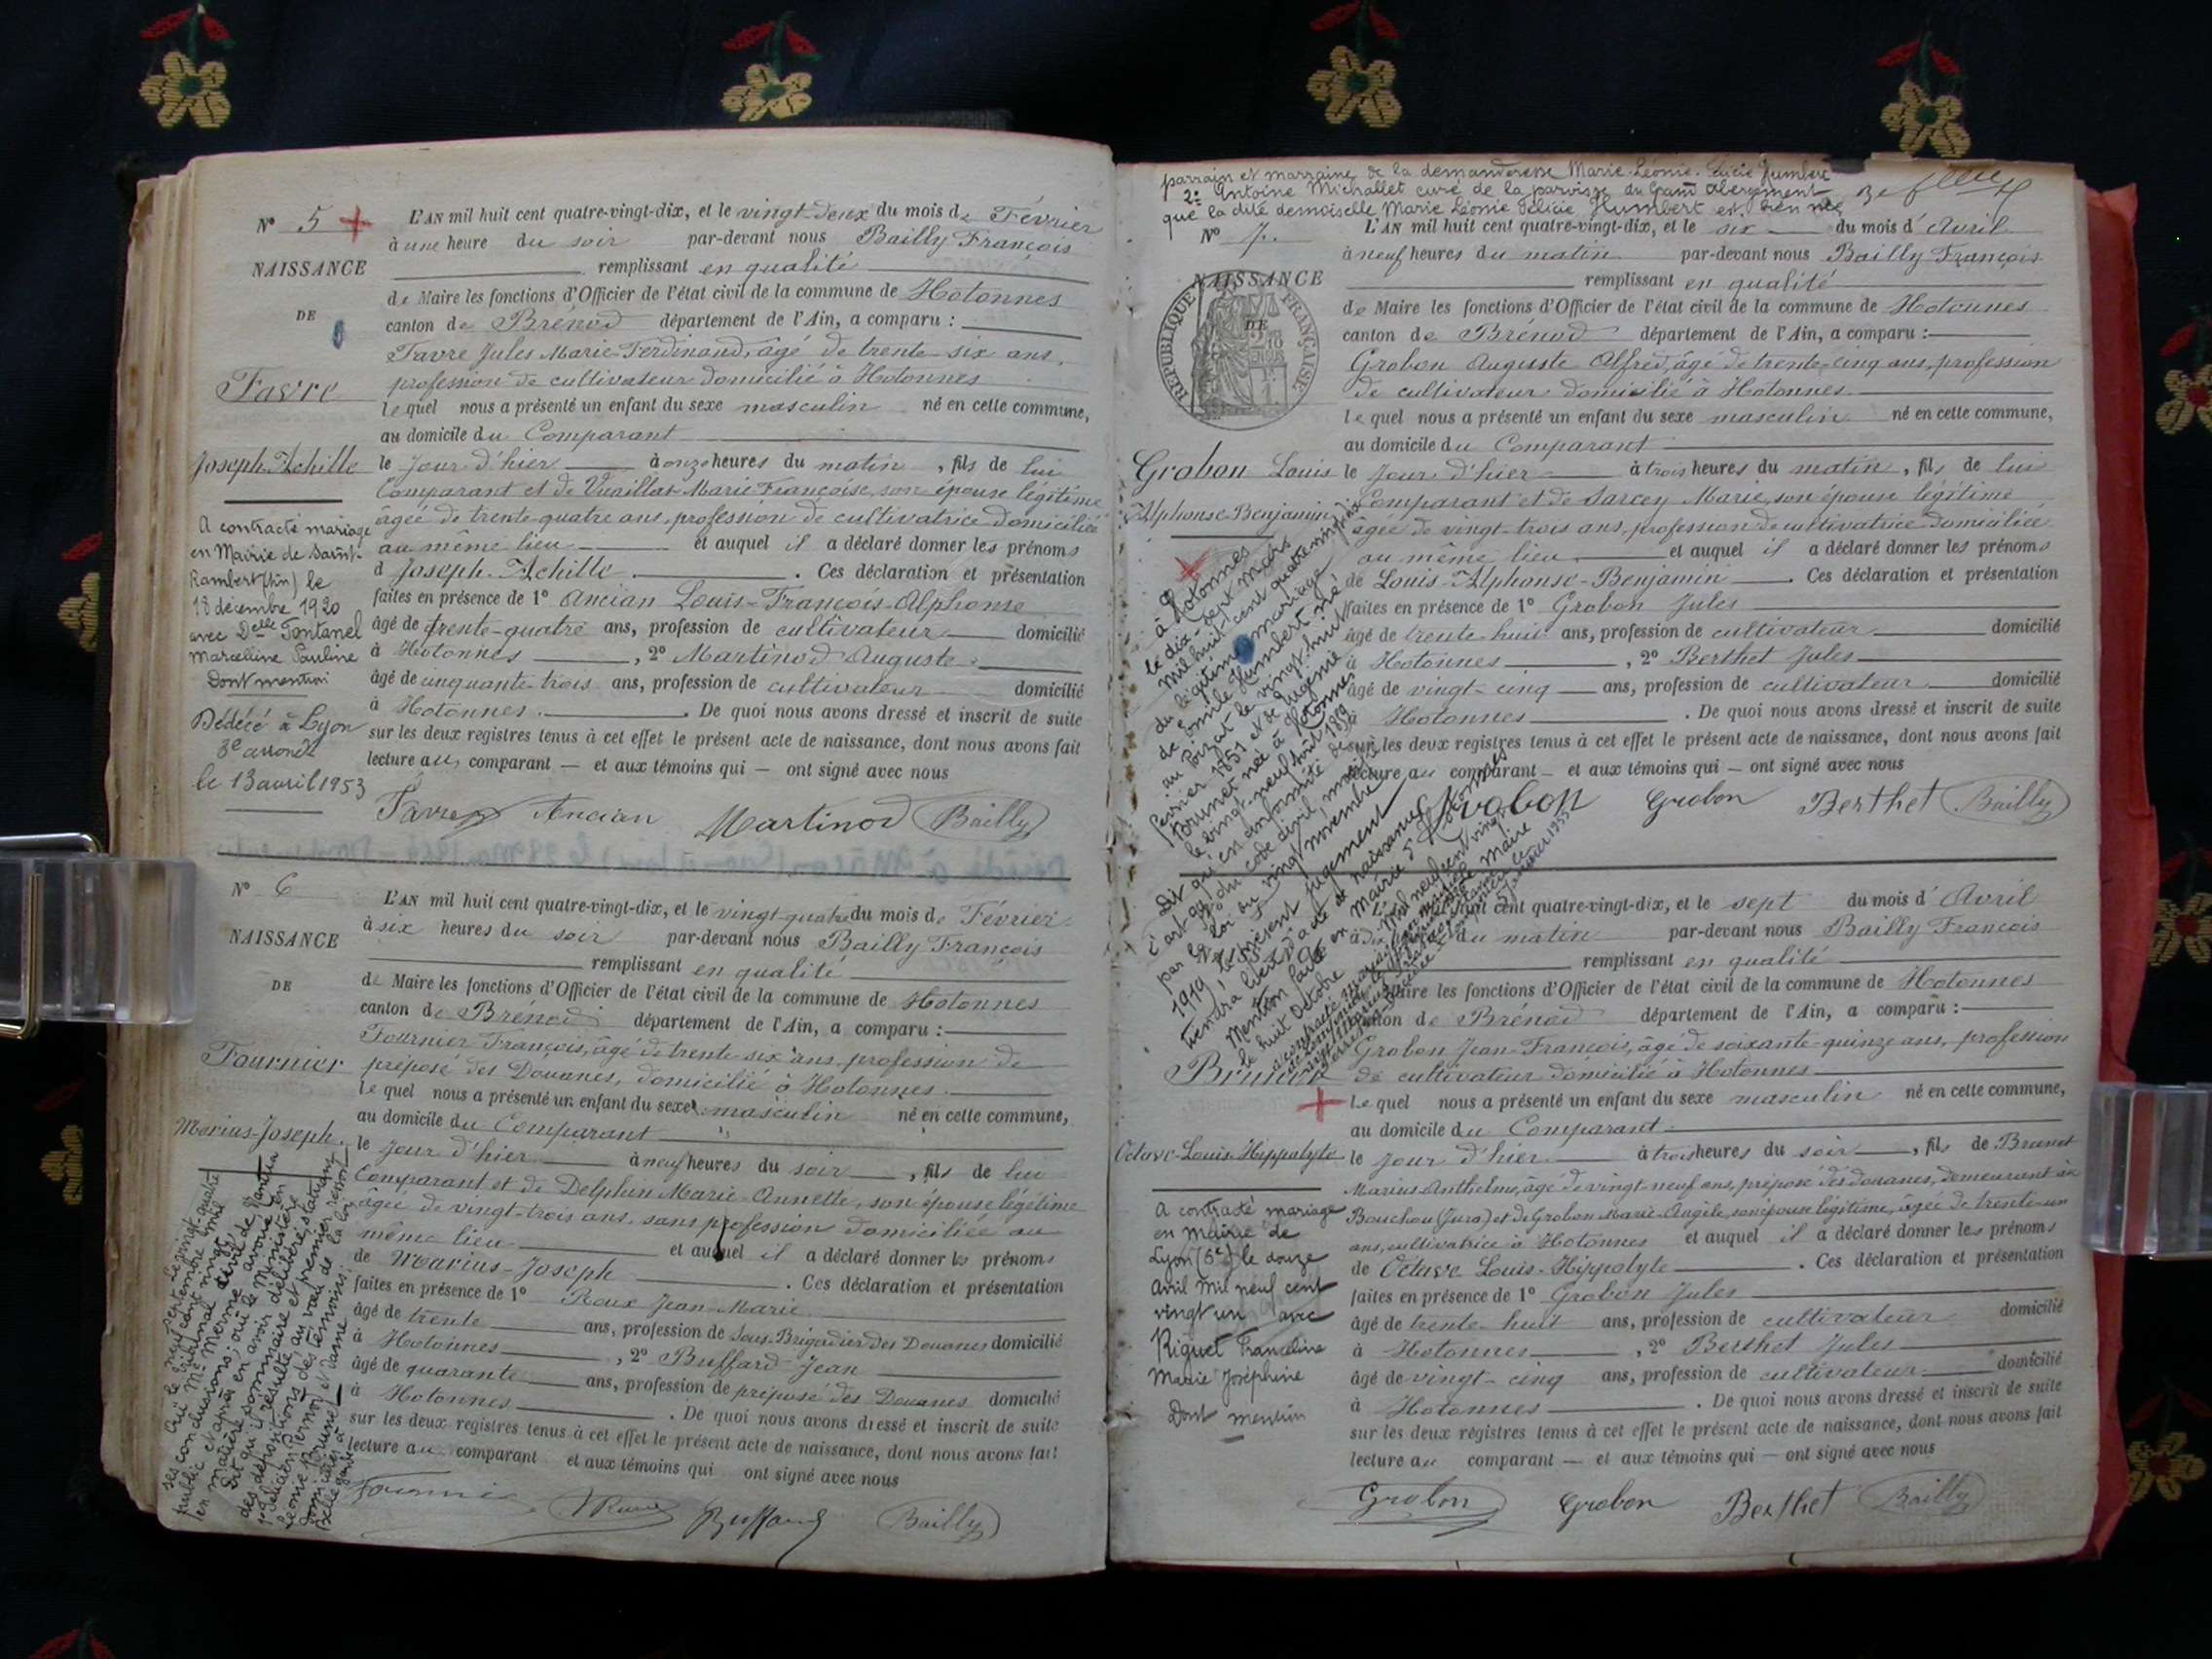 N° 5
NAISSANCE
DE
Favre
Joseph-Achille
A contracté mariage
en Mairie de Saint-
Rambert (Ain) le
18 décembre 1920
avec Delle Fontanel
Marcelline Pauline
Dont mention
Dédécé à Lyon
3e arrondt
le 13 avril 1953
L'AN mil huit cent quatre-vingt-dix, et le vingt-deux du mois de Février
à une heure du soir par-devant nous Bailly François
remplissant en qualité
de Maire les fonctions d'Officier de l'état civil de la commune de Hotonnes
canton de Brénod département de l'Ain, a comparu :
Favre Jules Marie-Ferdinand, âgé de trente-six ans,
profession de cultivateur domicilié à Hotonnes
lequel nous a présenté un enfant du sexe masculin né en cette commune,
au domicile du Comparant
le jour d'hier à onze heures du matin, fils de lui
Comparant et de Vuaillat Marie Françoise, son épouse légitime
âgée de trente-quatre ans, profession de cultivatrice domiciliée
au même lieu et auquel il a déclaré donner les prénoms
d Joseph-Achille. Ces déclaration et présentation
faites en présence de 1° Ancian Louis-François-Alphonse
âgé de trente-quatre ans, profession de cultivateur domicilié
à Hotonnes, 2° Martinod Auguste
âgé de cinquante-trois ans, profession de cultivateur domicilié
à Hotonnes. De quoi nous avons dressé et inscrit de suite
sur les deux registres tenus à cet effet le présent acte de naissance, dont nous avons fait
lecture au comparant — et aux témoins qui — ont signé avec nous
Favre Ancian Martinod Bailly
N° 6
NAISSANCE
DE
Fournier
Marius-Joseph
L'AN mil huit cent quatre-vingt-dix, et le vingt-quatre du mois de Février
à six heures du soir par-devant nous Bailly François
remplissant en qualité
de Maire les fonctions d'Officier de l'état civil de la commune de Hotonnes
canton de Brénod département de l'Ain, a comparu :
Fournier François, âgé de trente-six ans, profession de
préposé des Douanes, domicilié à Hotonnes
lequel nous a présenté un enfant du sexe masculin né en cette commune,
au domicile du Comparant
le jour d'hier à neuf heures du soir, fils de lui
Comparant et de Delphin Marie-Annette, son épouse légitime
âgée de vingt-trois ans, sans profession domiciliée au
même lieu et auquel il a déclaré donner les prénoms
de Marius-Joseph. Ces déclaration et présentation
faites en présence de 1° Roux Jean-Marie
âgé de trente ans, profession de Sous-Brigadier des Douanes domicilié
à Hotonnes, 2° Buffard Jean
âgé de quarante ans, profession de préposé des Douanes domicilié
à Hotonnes. De quoi nous avons dressé et inscrit de suite
sur les deux registres tenus à cet effet le présent acte de naissance, dont nous avons fait
lecture au comparant et aux témoins qui ont signé avec nous
Bailly
Le vingt-quatre
septembre mil
neuf cent vingt
Ouï le tribunal civil de Nantua
ses conclusions, ouï le Ministère
public et après en avoir délibéré, statuant
en matière sommaire et premier ressort
Dit qu'il résulte, au vœu de la loi
des dépositions des témoins:
domiciliés à
Bellegarde
parrain et marraine de la demanderesse Marie-Léonie-Félicie Humbert
2° Antoine Michallet curé de la paroisse du Grand Abergement
que la dite demoiselle Marie Léonie Félicie Humbert est bien née
N° 7.
NAISSANCE
DE
RÉPUBLIQUE FRANÇAISE
Grobon Louis
Alphonse-Benjamin
L'AN mil huit cent quatre-vingt-dix, et le six du mois d'Avril
à neuf heures du matin par-devant nous Bailly François
remplissant en qualité
de Maire les fonctions d'Officier de l'état civil de la commune de Hotonnes
canton de Brénod département de l'Ain, a comparu :
Grobon Auguste Alfred, âgé de trente-cinq ans, profession
de cultivateur domicilié à Hotonnes
lequel nous a présenté un enfant du sexe masculin né en cette commune,
au domicile du Comparant
le jour d'hier à trois heures du matin, fils de lui
Comparant et de Sarcey Marie, son épouse légitime
âgée de vingt-trois ans, profession de cultivatrice domiciliée
au même lieu et auquel il a déclaré donner les prénoms
de Louis-Alphonse-Benjamin. Ces déclaration et présentation
faites en présence de 1° Grobon Jules
âgé de trente-huit ans, profession de cultivateur domicilié
à Hotonnes, 2° Berthet Jules
âgé de vingt-cinq ans, profession de cultivateur domicilié
à Hotonnes. De quoi nous avons dressé et inscrit de suite
sur les deux registres tenus à cet effet le présent acte de naissance, dont nous avons fait
lecture au comparant — et aux témoins qui — ont signé avec nous
Grobon Grobon Berthet Bailly
à Hotonnes
le dix-sept Mars
mil huit cent quatre-vingt-dix
du légitime mariage
de Emile Humbert né
au Poizat le vingt-huit
février 1851 et de Eugénie
Brunet née à Hotonnes
le vingt-neuf août 1859
Dit qu'en conformité de
du code civil modifié
par la loi du vingt novembre
1919, le présent jugement
tiendra lieu d'acte de naissance
Mention faite en Mairie d'Hotonnes
le huit Octobre mil neuf cent vingt
Brunet
Octave-Louis-Hyppolyte
A contracté mariage
en Mairie de
Lyon (5e) le douze
Avril Mil neuf cent
vingt un avec
Riguet Franceline
Marie Joséphine
Dont mention
cent quatre-vingt-dix, et le sept du mois d'Avril
à dix heures du matin par-devant nous Bailly François
remplissant en qualité
Maire les fonctions d'Officier de l'état civil de la commune de Hotonnes
canton de Brénod département de l'Ain, a comparu :
Grobon Jean-François, âgé de soixante-quinze ans, profession
de cultivateur domicilié à Hotonnes
lequel nous a présenté un enfant du sexe masculin né en cette commune,
au domicile du Comparant
le jour d'hier à trois heures du soir, fils de Brunet
Marius-Anthelme, âgé de vingt-neuf ans, préposé des douanes, demeurant à
Bouchou (Jura) et de Grobon Marie-Angèle, son épouse légitime, âgée de trente-un
ans, cultivatrice à Hotonnes et auquel il a déclaré donner les prénoms
de Octave Louis-Hyppolyte. Ces déclaration et présentation
faites en présence de 1° Grobon Jules
âgé de trente-huit ans, profession de cultivateur domicilié
à Hotonnes, 2° Berthet Jules
âgé de vingt-cinq ans, profession de cultivateur domicilié
à Hotonnes. De quoi nous avons dressé et inscrit de suite
sur les deux registres tenus à cet effet le présent acte de naissance, dont nous avons fait
lecture au comparant — et aux témoins qui — ont signé avec nous
Grobon Grobon Berthet Bailly